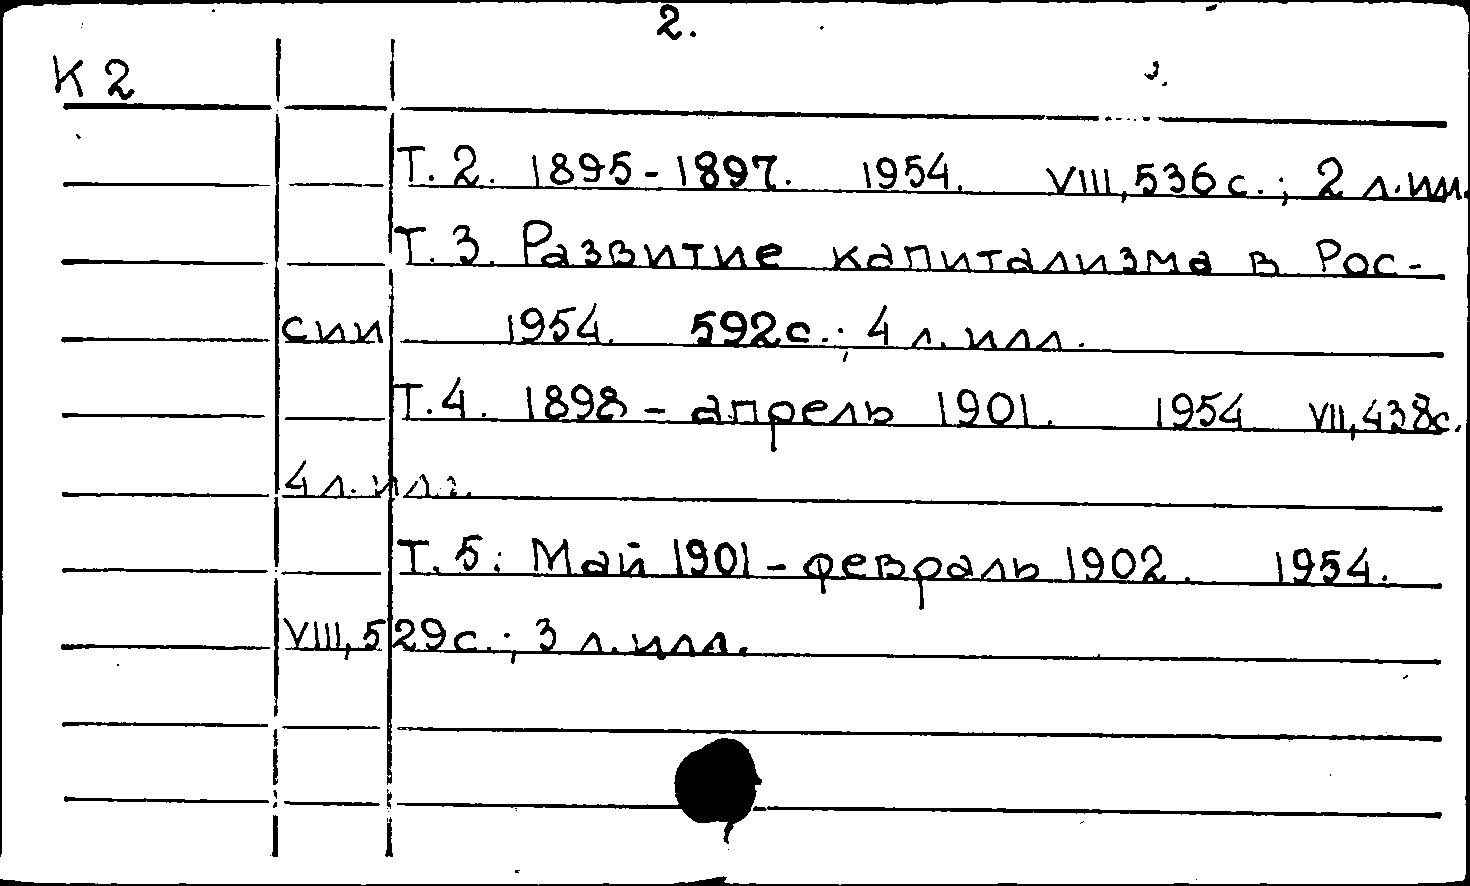 2.
К 2
Т. 2. 1895-1897. 1954. VIII, 536 с.; 2 л. ил.
Т. 3. Развитие капитализма в Рос-
сии 1954. 592 с.; 4 л. илл.
Т. 4. 1898 - апрель 1901. 1954 VII, 438 с.
4 л. илл.
Т. 5. Май 1901 - февраль 1902. 1954.
VIII, 529 с.; 3 л. илл.